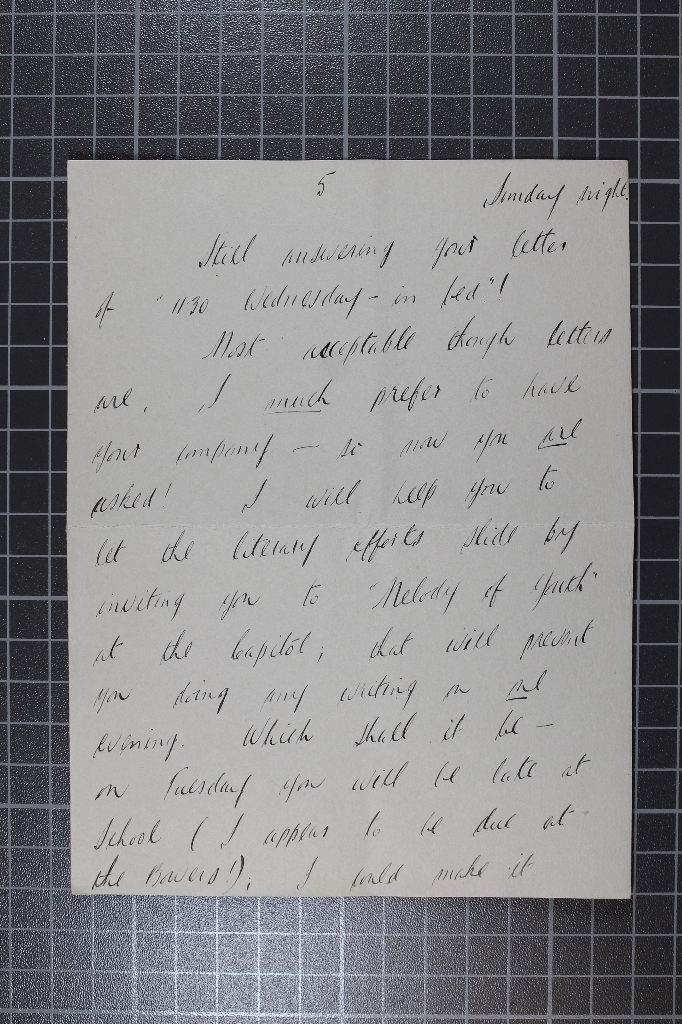 5
Sunday night.
Still answering your letter
of "11.30 Wednesday – in bed."!
Most acceptable though letters
are, I much prefer to have
your company – so now you are
asked! I will help you to
let the literary efforts slide by
inviting you to "Melody of Youth"
at the Capitol; that will prevent
you doing any writing on one
evening. Which shall it be –
on Tuesday you will be late at
School (I appear to be due at
the Bowers!); I could make it